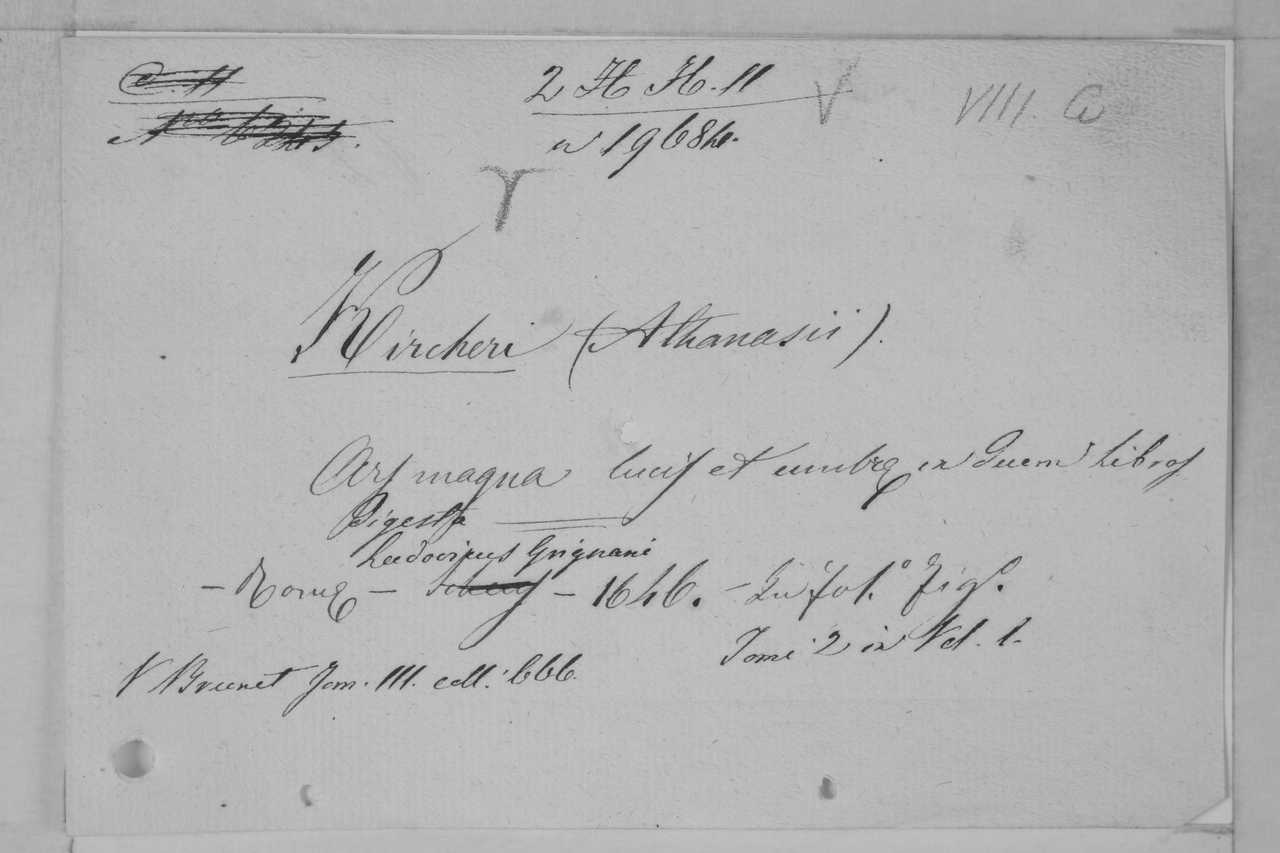 2 H H. 11
V
VIII. G
n 19684.
Kircheri (Athanasii).
Ars magna lucis et umbre in Decem Libros
Digesta
Ludovicus Grignani
– Rome – – 1646. – In fol.° Fig.°
Tomi 2 in Vol. 1.
V Brunet Tom. III. coll. 666.